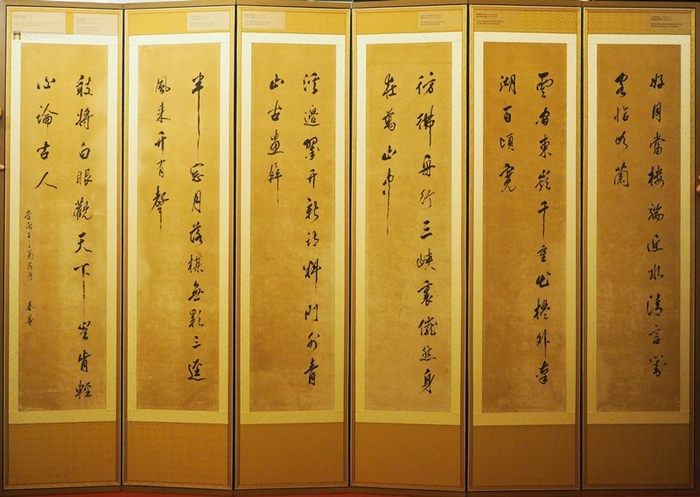 好月當樓端近水清言對
客恰如蘭
雲 東嶺千重出 外
湖百頃寬
彷彿舟行三峽裏儼然身
在萬山中
溪邊 開新詩料門外青
山古畫屛
半窓月落梅無影三逕
風來竹有聲
敢將白眼觀天下豈肯輕
心論古人
丙子之菊